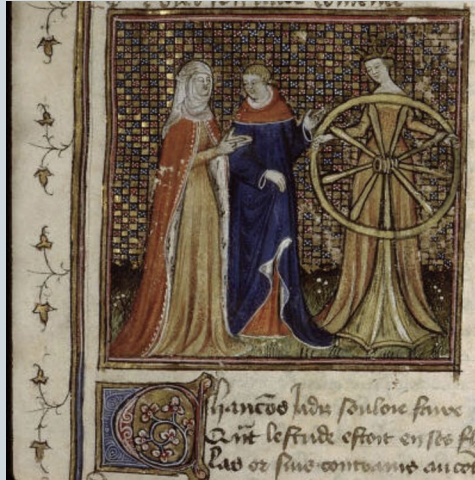 Chancõs iadis souloie faire
Qñt lestude estoit en ses fl
Las or suis contrains au